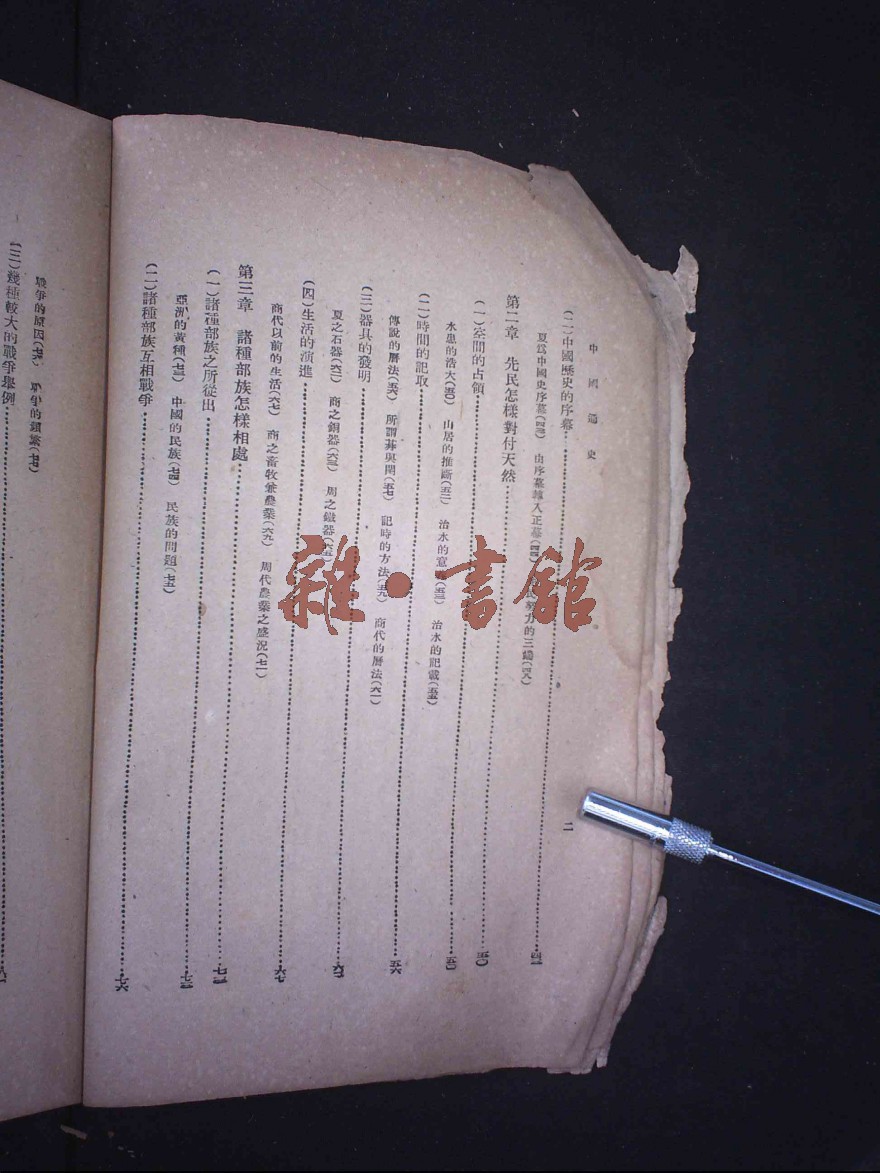 中國通史
二
(二)中國歷史的序幕 四二
夏爲中國史序幕(四二) 由序幕轉入正幕(四四) 努力的三端(四八)
第二章 先民怎樣對付天然 五〇
(一)空間的占領 五〇
水患的浩大(五〇) 山居的推斷(五二) 治水的意(五三) 治水的記載(五五)
(二)時間的記取 五六
傳說的曆法(五六) 所謂萁與閏(五七) 記時的方法(五九) 商代的曆法(六一)
(三)器具的發明 六二
夏之石器(六二) 商之銅器(六三) 周之鐵器(六五)
(四)生活的演進 六七
商代以前的生活(六七) 商之畜牧兼農業(六九) 周代農業之盛況(七一)
第三章 諸種部族怎樣相處 七三
(一)諸種部族之所從出 七三
亞洲的黃種(七三) 中國的民族(七四) 民族的問題(七五)
(二)諸種部族互相戰爭 七六
戰爭的原因(七六) 戰爭的頻繁(七七)
(三)幾種較大的戰爭舉例
雜·書館